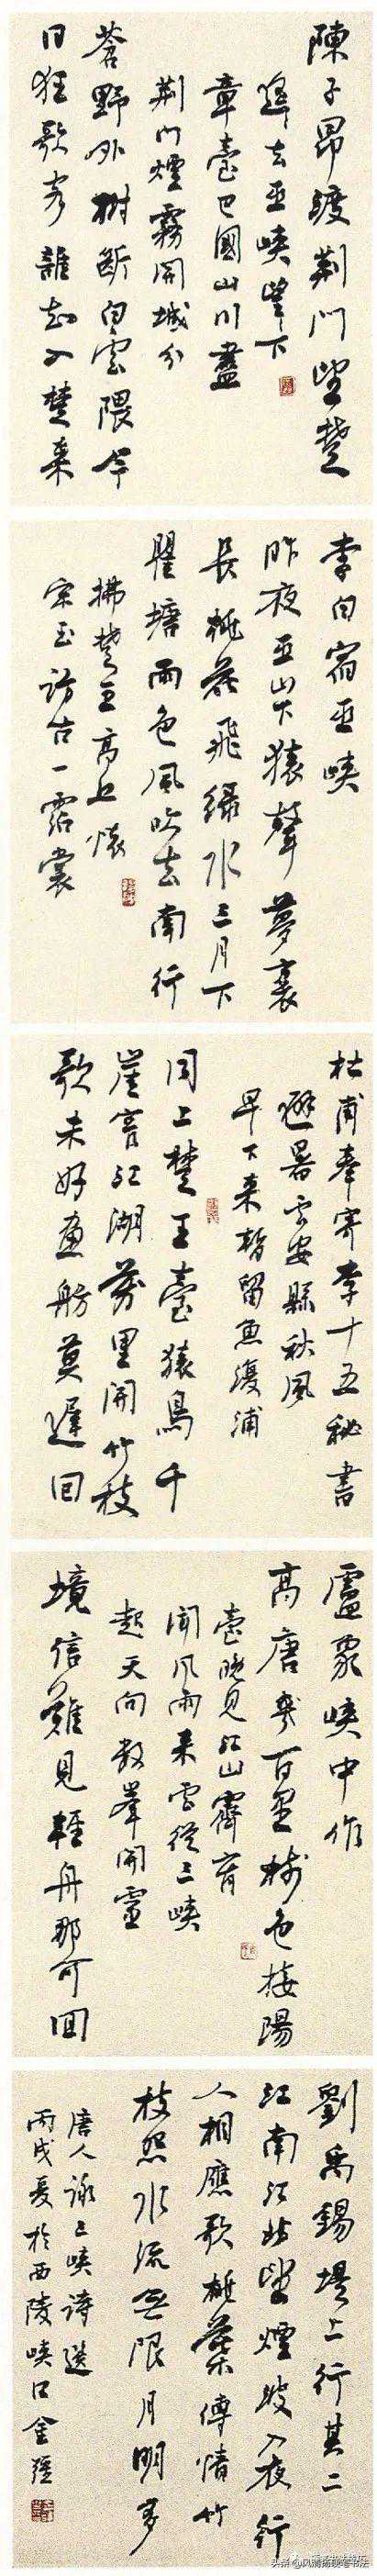 陳子昂渡荊門望楚
遙去巫峽望下
章臺巴國山川盡
荊門煙霧開城分
蒼野外樹斷白雲隈今
日狂歌客誰知入楚來
李白宿巫峽
昨夜巫山下猿聲夢裏
長桃花飛綠水三月下
瞿塘雨色風吹去南行
拂楚王高丘懷
宋玉訪古一霑裳
杜甫奉寄李十五秘書
避暑雲安縣秋風
早下來暫留魚復浦
同上楚王臺猿鳥千
崖窄江湖萬里開竹枝
歌未好畫舫莫遲回
盧象峽中作
高唐幾百里樹色接陽
臺晚見江山霽宵
聞風雨來雲從三峽
起天向數峯開靈
境信難見輕舟那可回
劉禹錫堤上行其二
江南江北望煙波入夜行
人相應歌桃葉傳情竹
枝怨水流無限月明多
唐人詠三峽詩選
丙戌夏於西陵峽口金疆